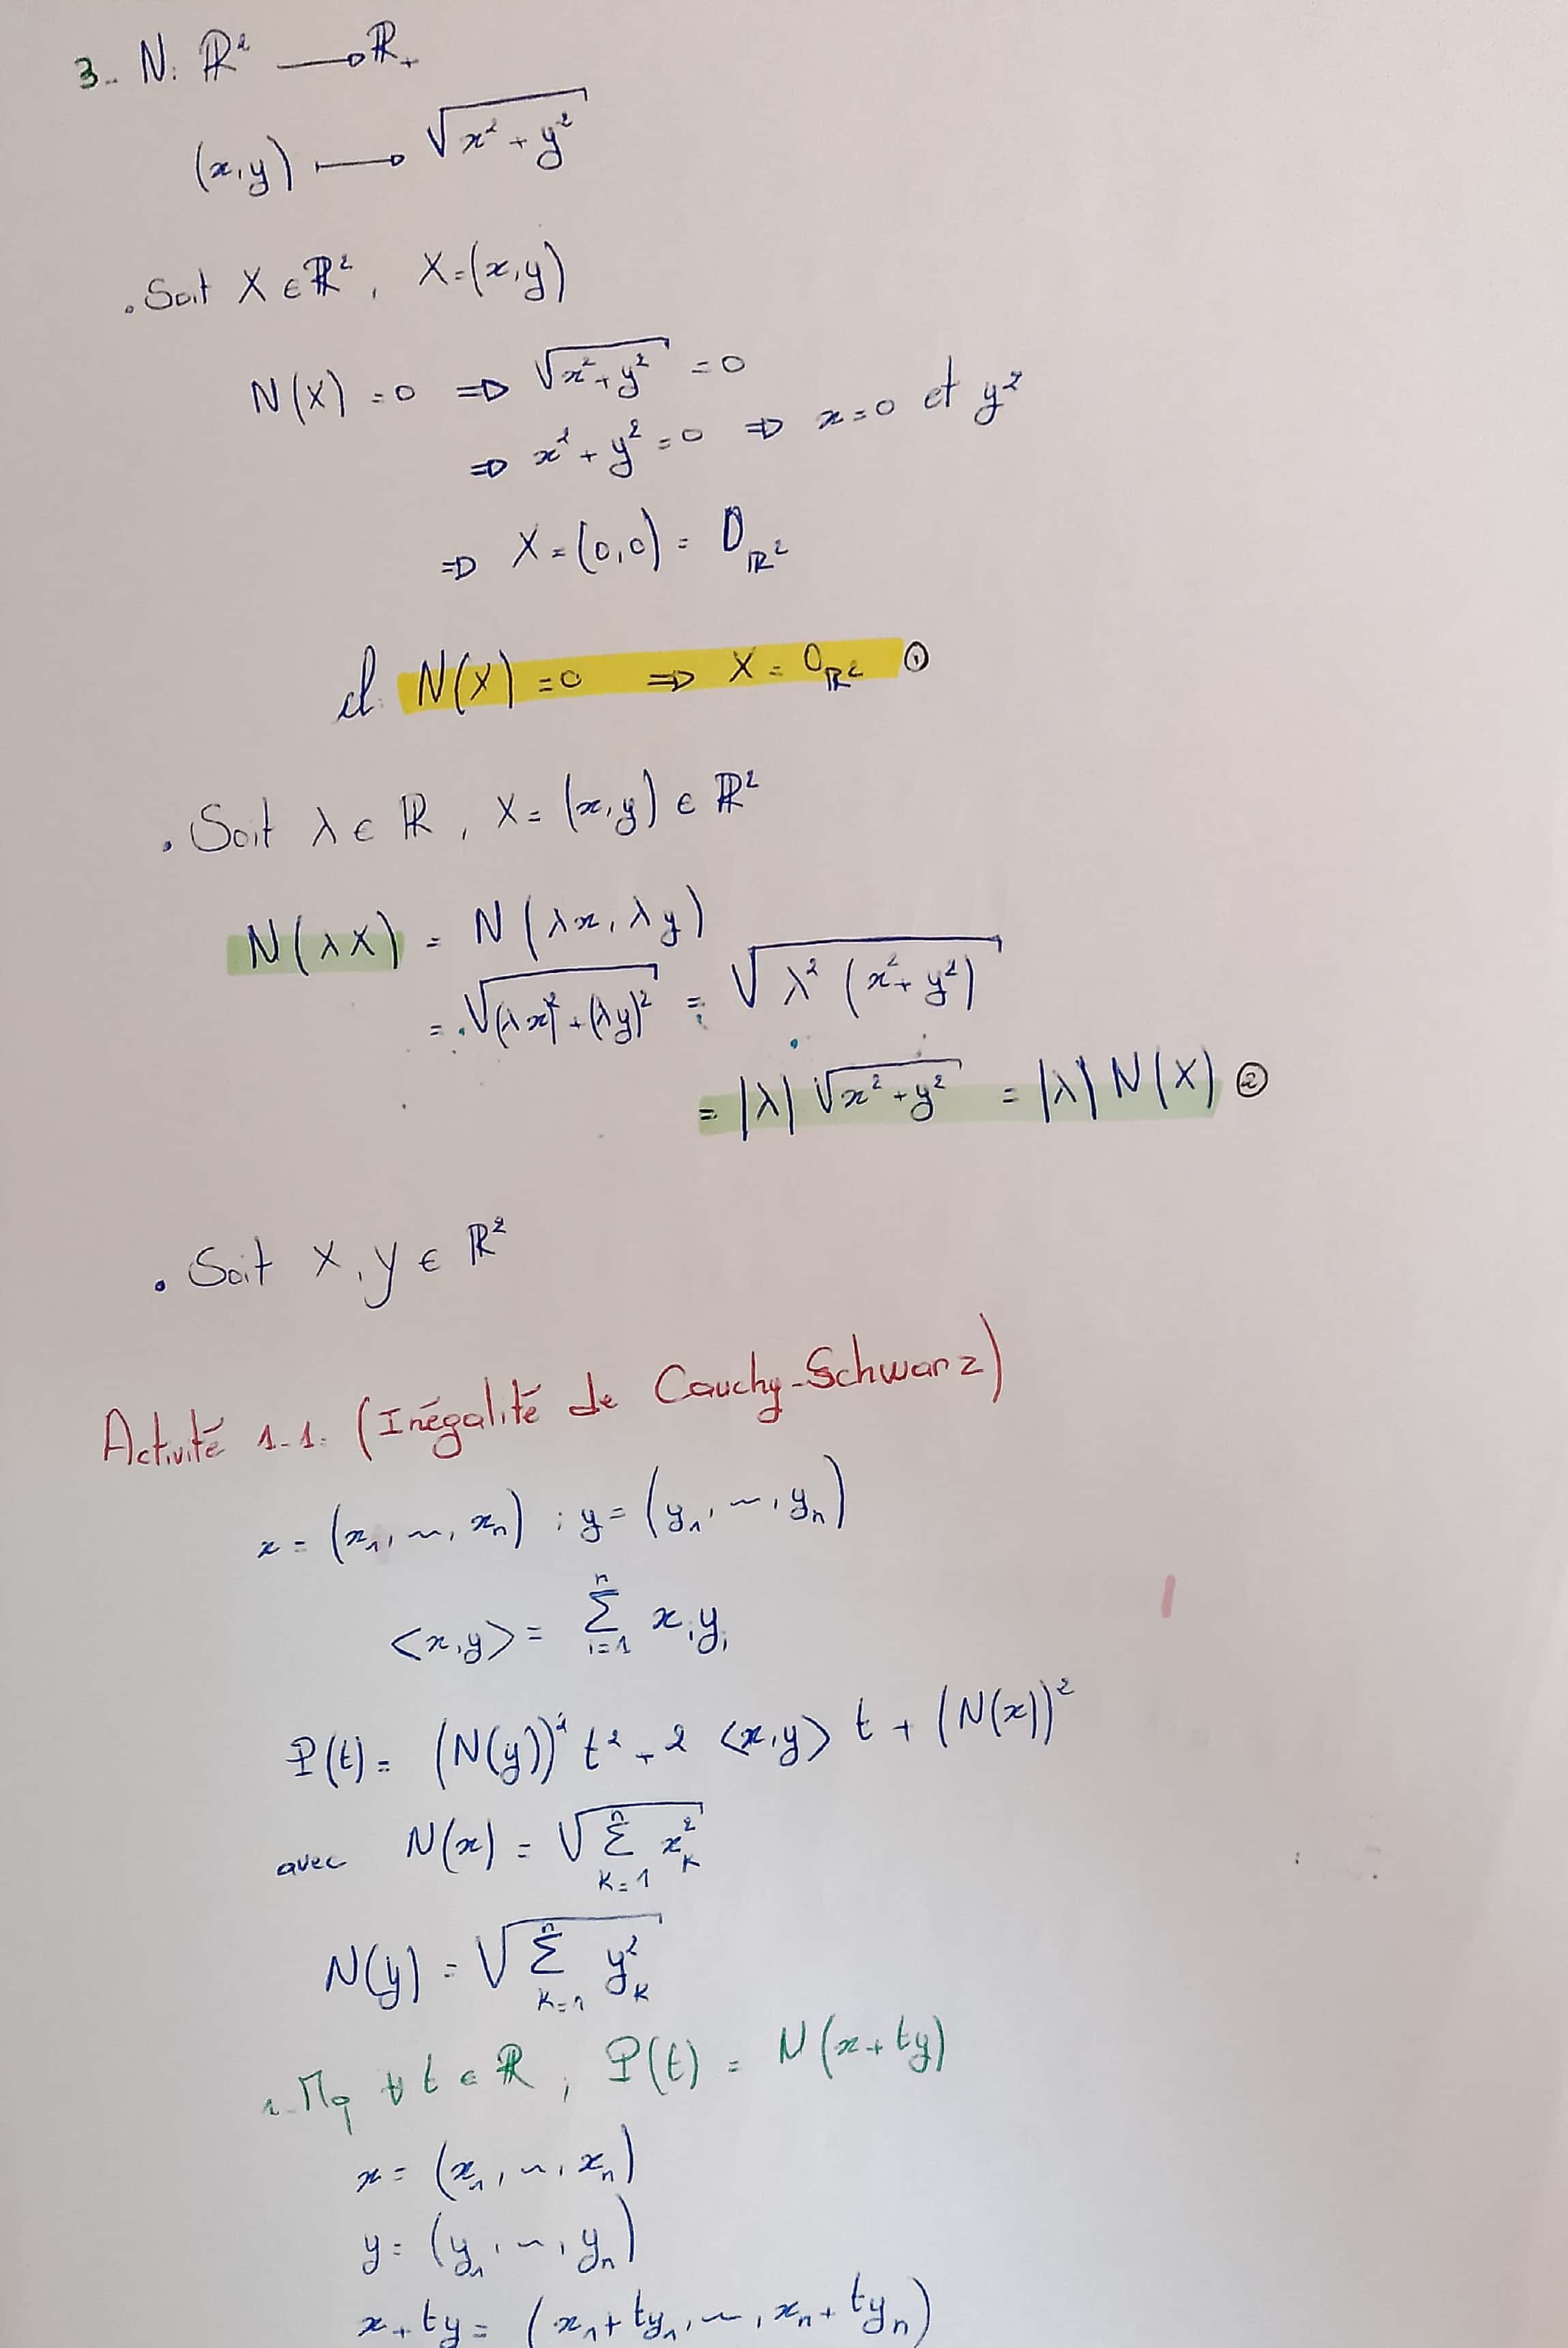 3. N: ℝ² → ℝ₊
(x,y) ↦ √(x² + y²)
. Soit X ∈ ℝ², X=(x,y)
N(X) = 0 ⇒ √(x² + y²) = 0
⇒ x² + y² = 0 ⇒ x = 0 et y²
⇒ X = (0,0) = 0_ℝ²
N(X) = 0 ⇒ X = 0_ℝ² ①
. Soit λ ∈ ℝ, X = (x,y) ∈ ℝ²
N(λX) = N(λx, λy)
= √((λx)² + (λy)²) = √(λ² (x² + y²))
= |λ| √(x² + y²) = |λ| N(X) ②
. Soit X, y ∈ ℝ²
Activité 1-1. (Inégalité de Cauchy-Schwarz)
x = (x₁, ..., xₙ) ; y = (y₁, ..., yₙ)
<x,y> = Σⁿᵢ₌₁ xᵢyᵢ
P(t) = (N(y))² t² + 2 <x,y> t + (N(x))²
avec N(x) = √(Σⁿₖ₌₁ xₖ²)
N(y) = √(Σⁿₖ₌₁ yₖ²)
1. Mq ∀ t ∈ ℝ, P(t) = N(x + ty)
x = (x₁, ..., xₙ)
y = (y₁, ..., yₙ)
x + ty = (x₁ + ty₁, ..., xₙ + tyₙ)